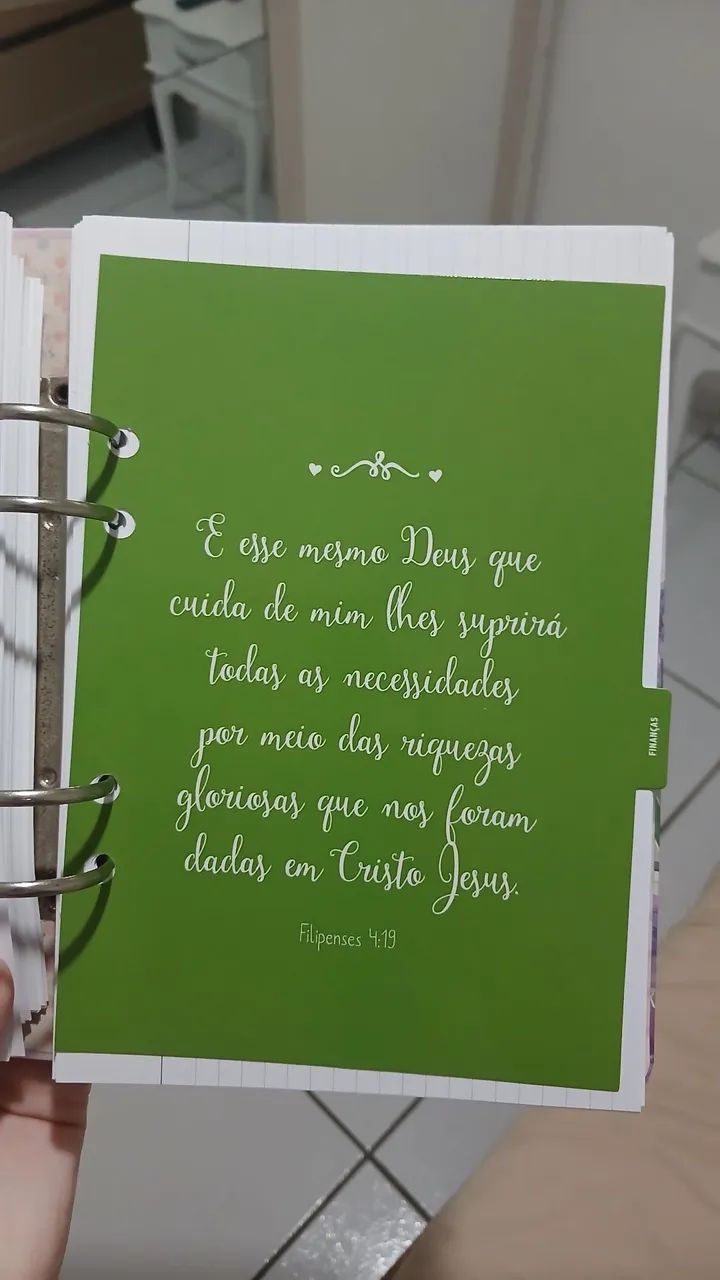 E esse mesmo Deus que
cuida de mim lhes suprirá
todas as necessidades
por meio das riquezas
gloriosas que nos foram
dadas em Cristo Jesus.
Filipenses 4:19
FINANÇAS